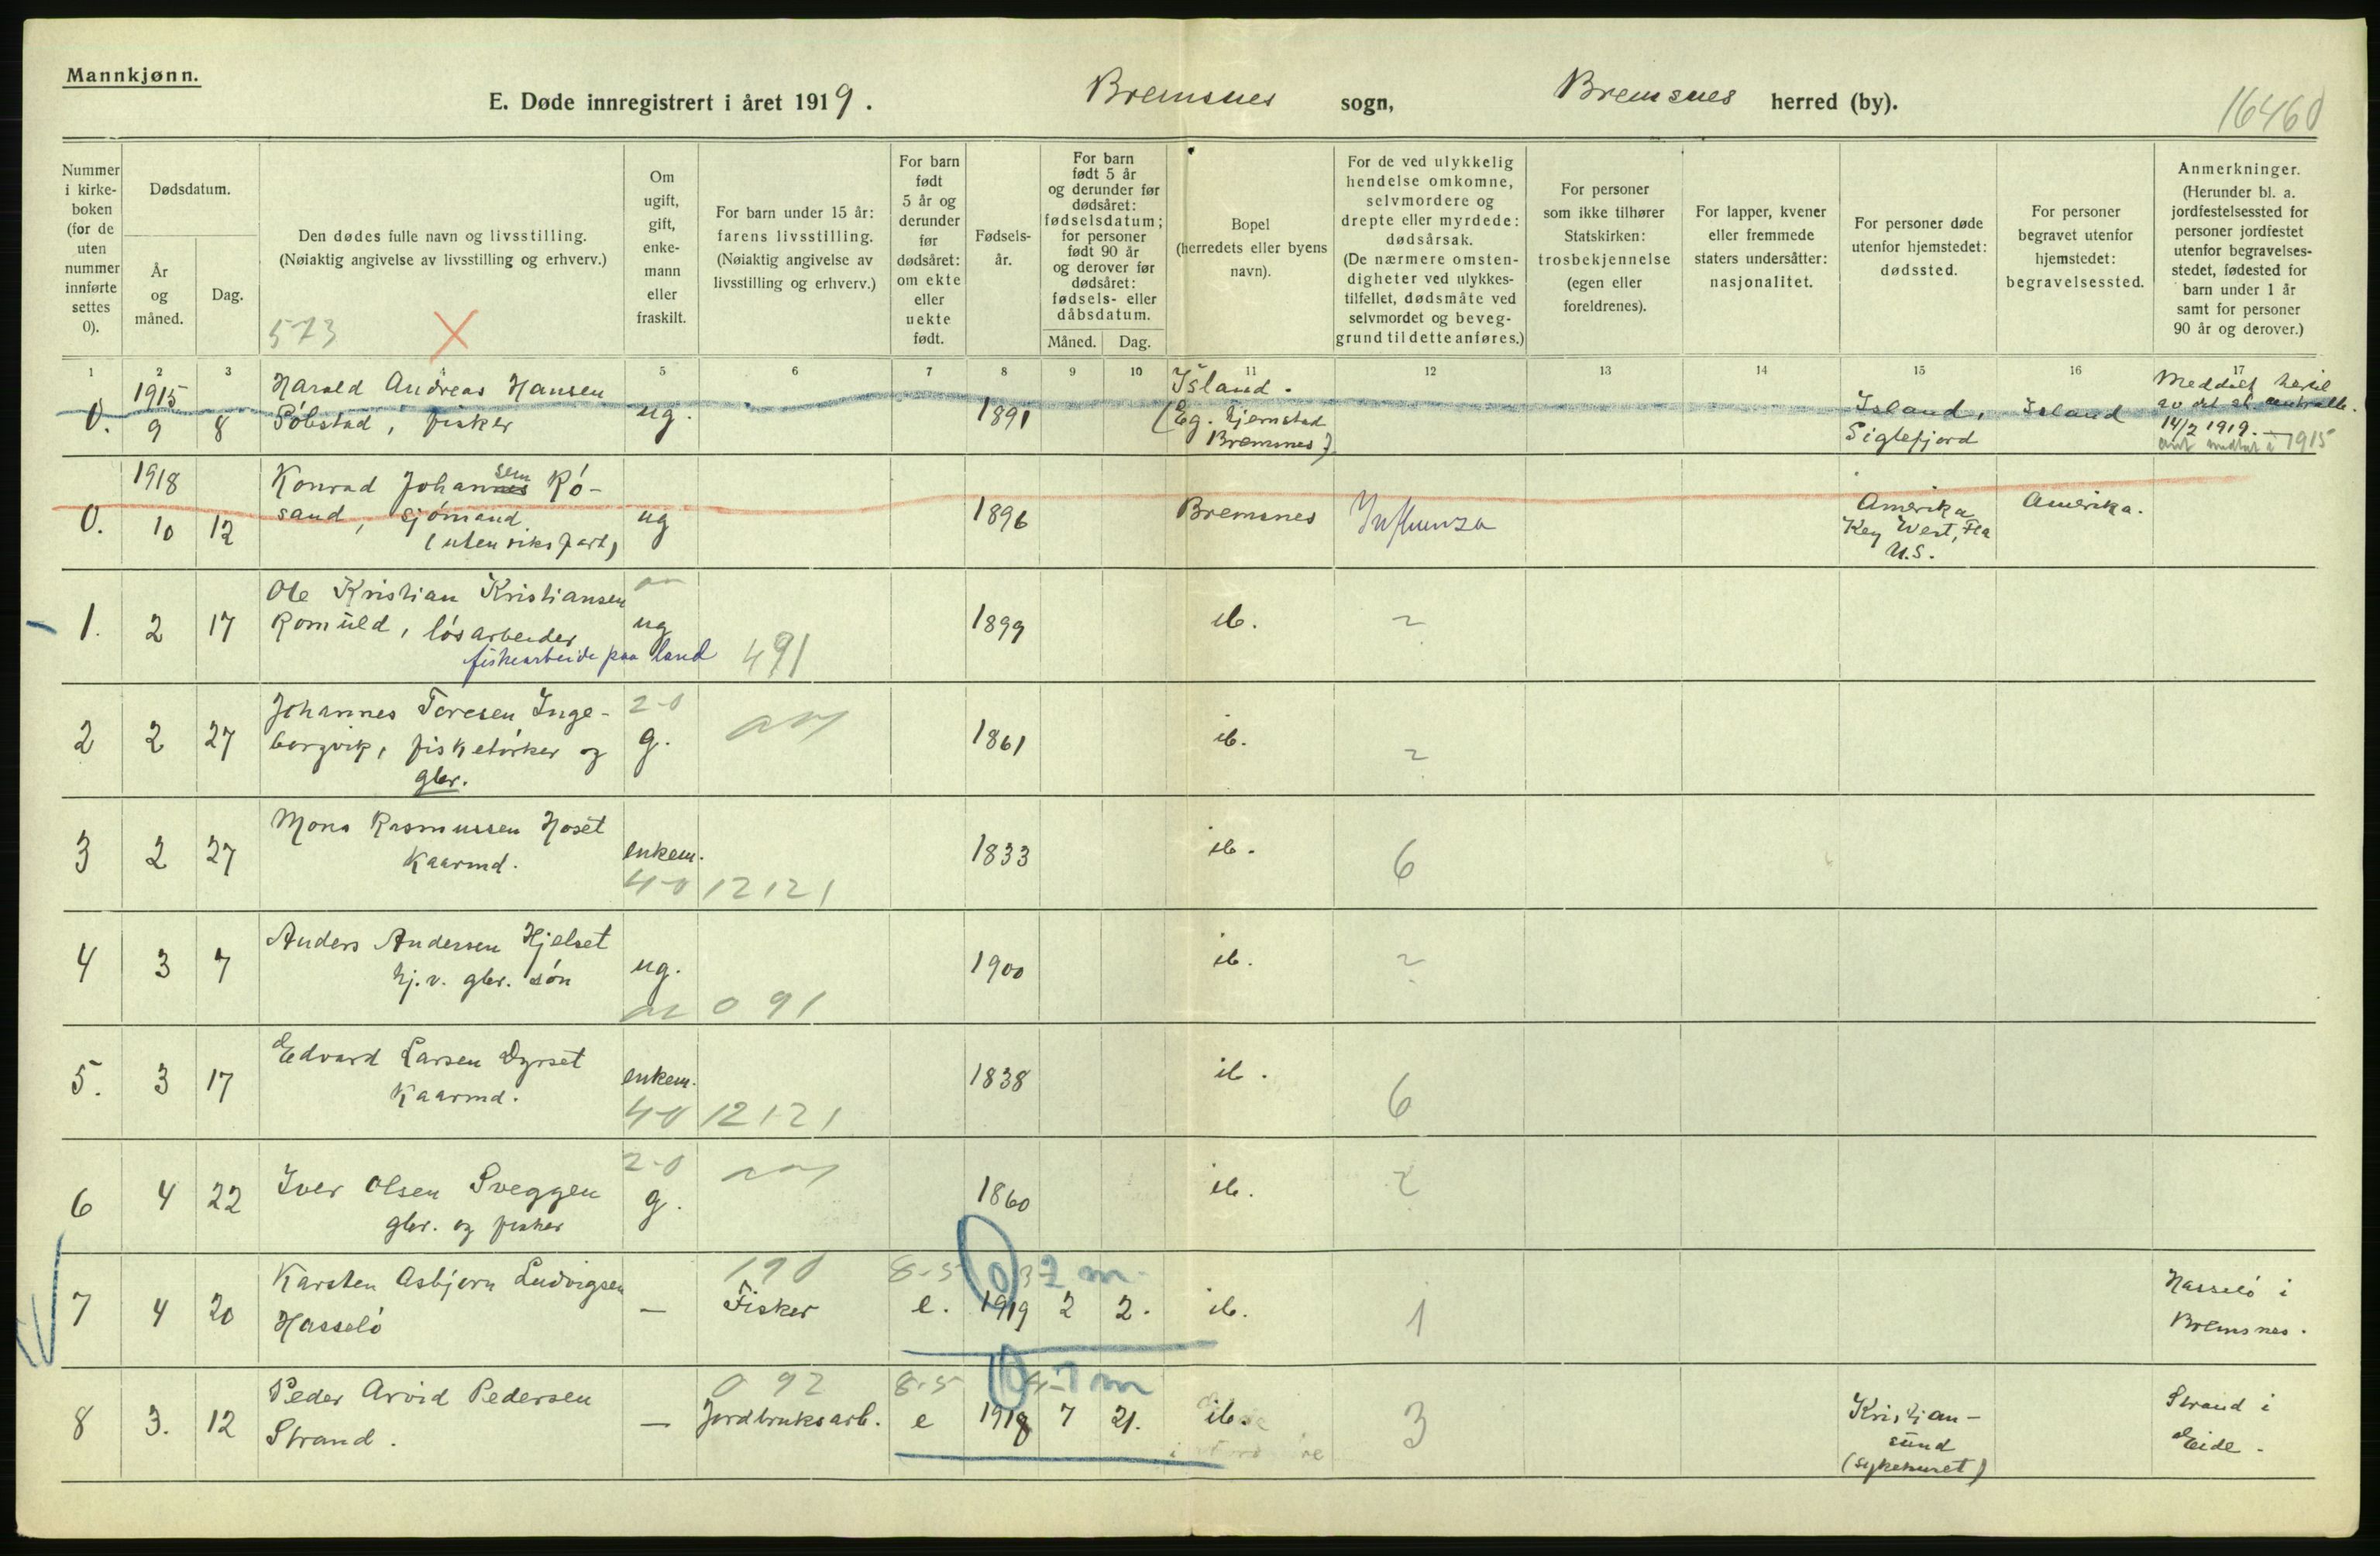 Mannkjønn.
E. Døde innregistrert i året 1919. Bremsnes sogn, Bremsnes herred (by).
16460
Nummer i kirke- boken (for de uten nummer innførte settes 0).
Dødsdatum.
År og måned.
Dag.
Den dødes fulle navn og livsstilling.
(Nøiaktig angivelse av livsstilling og erhverv.)
573 X
Om ugift, gift, enke- mann eller fraskilt.
For barn under 15 år: farens livsstilling. (Nøiaktig angivelse av livsstilling og erhverv.)
For barn født 5 år og derunder før dødsåret: om ekte eller uekte født.
Fødsels- år.
For barn født 5 år og derunder før dødsåret: fødselsdatum; for personer født 90 år og derover før dødsåret: fødsels- eller dåbsdatum.
Måned. Dag.
Bopel (herredets eller byens navn).
For de ved ulykkelig hendelse omkomne, selvmordere og drepte eller myrdede: dødsårsak. (De nærmere omsten- digheter ved ulykkes- tilfellet, dødsmåte ved selvmordet og beveg- grund til dette anføres.)
For personer som ikke tilhører Statskirken: trosbekjennelse (egen eller foreldrenes).
For lapper, kvener eller fremmede staters undersåtter: nasjonalitet.
For personer døde utenfor hjemstedet: dødssted.
For personer begravet utenfor hjemstedet: begravelsessted.
Anmerkninger. (Herunder bl. a. jordfestelsessted for personer jordfestet utenfor begravelses- stedet, fødested for barn under 1 år samt for personer 90 år og derover.)
1 2 3 4 5 6 7 8 9 10 11 12 13 14 15 16 17
0. 1915 9 8 Harald Andreas Hansen
Sølstad, fisker ug. 1891 Island.
(Eg. hjemstad
Bremsnes) Island,
Siglefjord Island Meddelt hertil
av det st. centralb.
14/2 1919. 1915
0. 1918 10 12 Konrad Johannessen Rø-
sand, sjømand
(utenriksfart) ug 1896 Bremsnes Influenza Amerika
Key West, Fla
U.S. Amerika.
1. 2 17 Ole Kristian Kristiansen
Romuld, løsarbeider
fiskearbeide paa land ug 491 1899 ib. 2
2 2 27 Johannes Toresen Inge-
borgvik, fisketørker og
gbr. 2-0 g. 1861 ib. 2
3 2 27 Mons Rasmussen Hoset
Kaarmd. enkem. 4-0 12121 1833 ib. 6
4 3 7 Anders Andersen Hjelset
hj. v. gbr. søn ug. 091 1900 ib. 2
5. 3 17 Edvard Larsen Dyrset
Kaarmd. enkem. 4-0 12121 1838 ib. 6
6 4 22 Iver Olsen Sveggen
gbr. og fisker 2-0 g. 1860 ib. 2
7 4 20 Karsten Asbjørn Ludvigsen
Hasselø — 190 Fisker 8-5 e. 1919 2 2. 2 m ib. 1 Hasselø i
Bremsnes.
8 3. 12 Peder Arvid Pedersen
Strand. — 092 Jordbruksarb. 8-5 e 1918 7 21. 7 m ib. 3 Kristian-
sund
(sykehuset) Strand i
Eide.